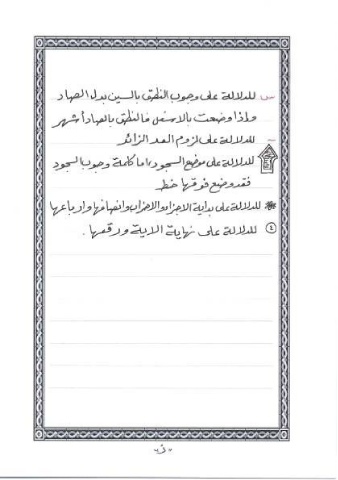 س للدلالة على وجوب النطق بالسين بدل الصاد
وإذا وضعت بالاسفل فالنطق بالصاد أشهر
~ للدلالة على لزوم المد الزائد
للدلالة على موضع السجود، اما كلمة وجوب السجود
فقد وضع فوقها خط
للدلالة على بداية الاجزاء والاحزاب وانصافها وارباعها
للدلالة على نهاية الاية ورقمها .